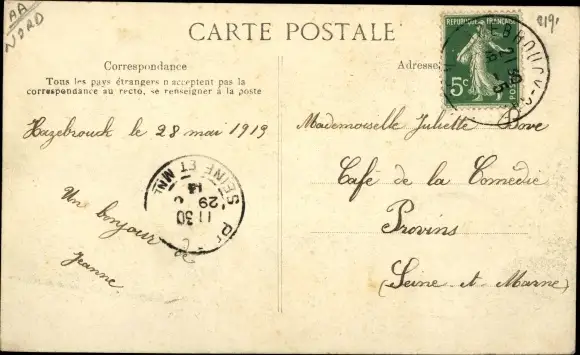 AA
NORD
CARTE POSTALE
8191
RÉPUBLIQUE FRANÇAISE
5c
POSTES
Correspondance
Tous les pays étrangers n'acceptent pas la
correspondance au recto, se renseigner à la poste
Adresse
Hazebrouck le 28 mai 1919
Un bonjour
Jeanne.
SEINE ET MNE
11 30
29
Mademoiselle Juliette Dove
Café de la Comédie
Provins
(Seine et Marne)